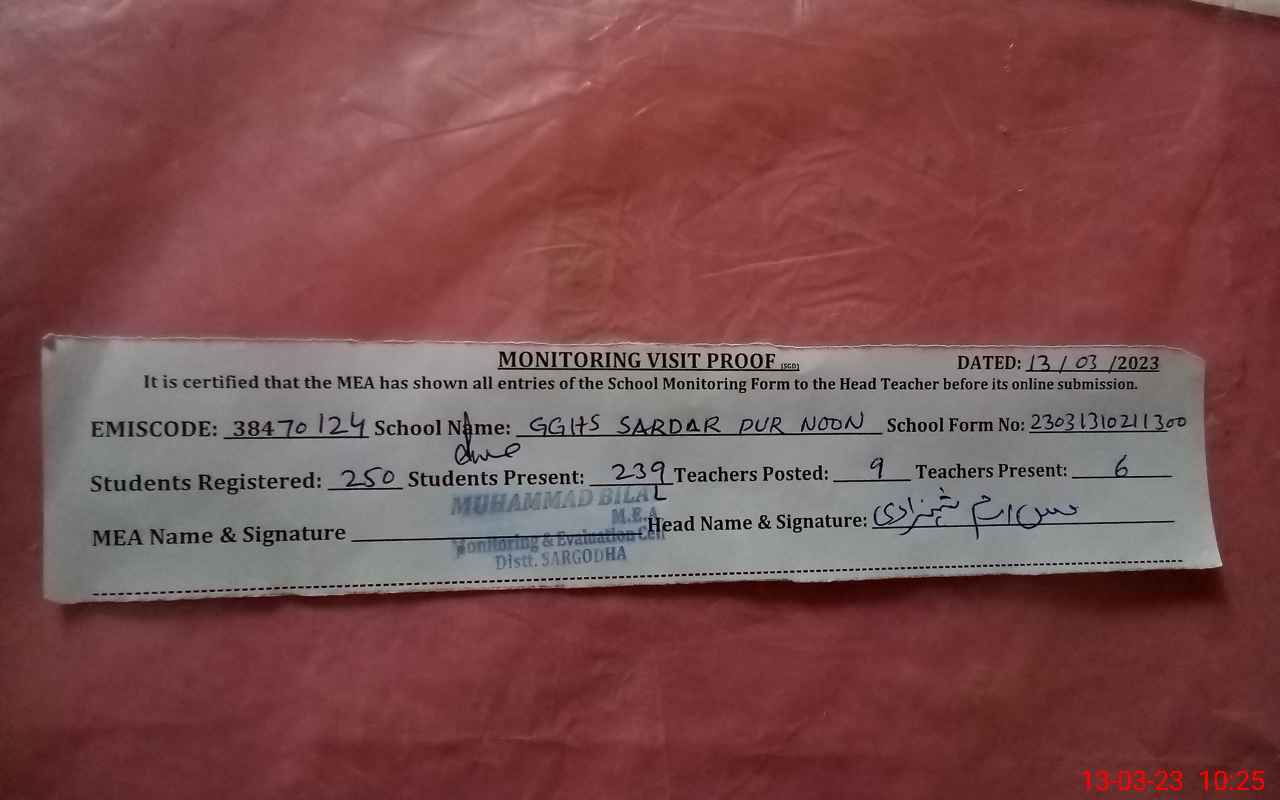 MONITORING VISIT PROOF (SGD) DATED: 13 / 03 /2023
It is certified that the MEA has shown all entries of the School Monitoring Form to the Head Teacher before its online submission.
EMISCODE: 38470124 School Name: GGHS SARDAR PUR NOON School Form No: 23031310211300
Students Registered: 250 Students Present: 239 Teachers Posted: 9 Teachers Present: 6
MUHAMMAD BILAL
M.E.A
MEA Name & Signature Head Name & Signature: شہزادی
Monitoring & Evaluation Cell
Distt. SARGODHA
13-03-23 10:25